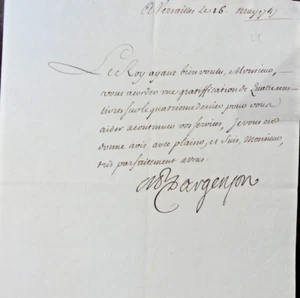 A Versailles le 16 may
Le Roy ayant bien voulu, Monsieur,
vous accorder une gratiffication de Quatre cent
livres sur le quatrieme denier pour vous
aider a continuer vos services, Je vous en
donne avis avec plaisir, et suis, Monsieur,
tres parfaitement a vous.
M Dargenson